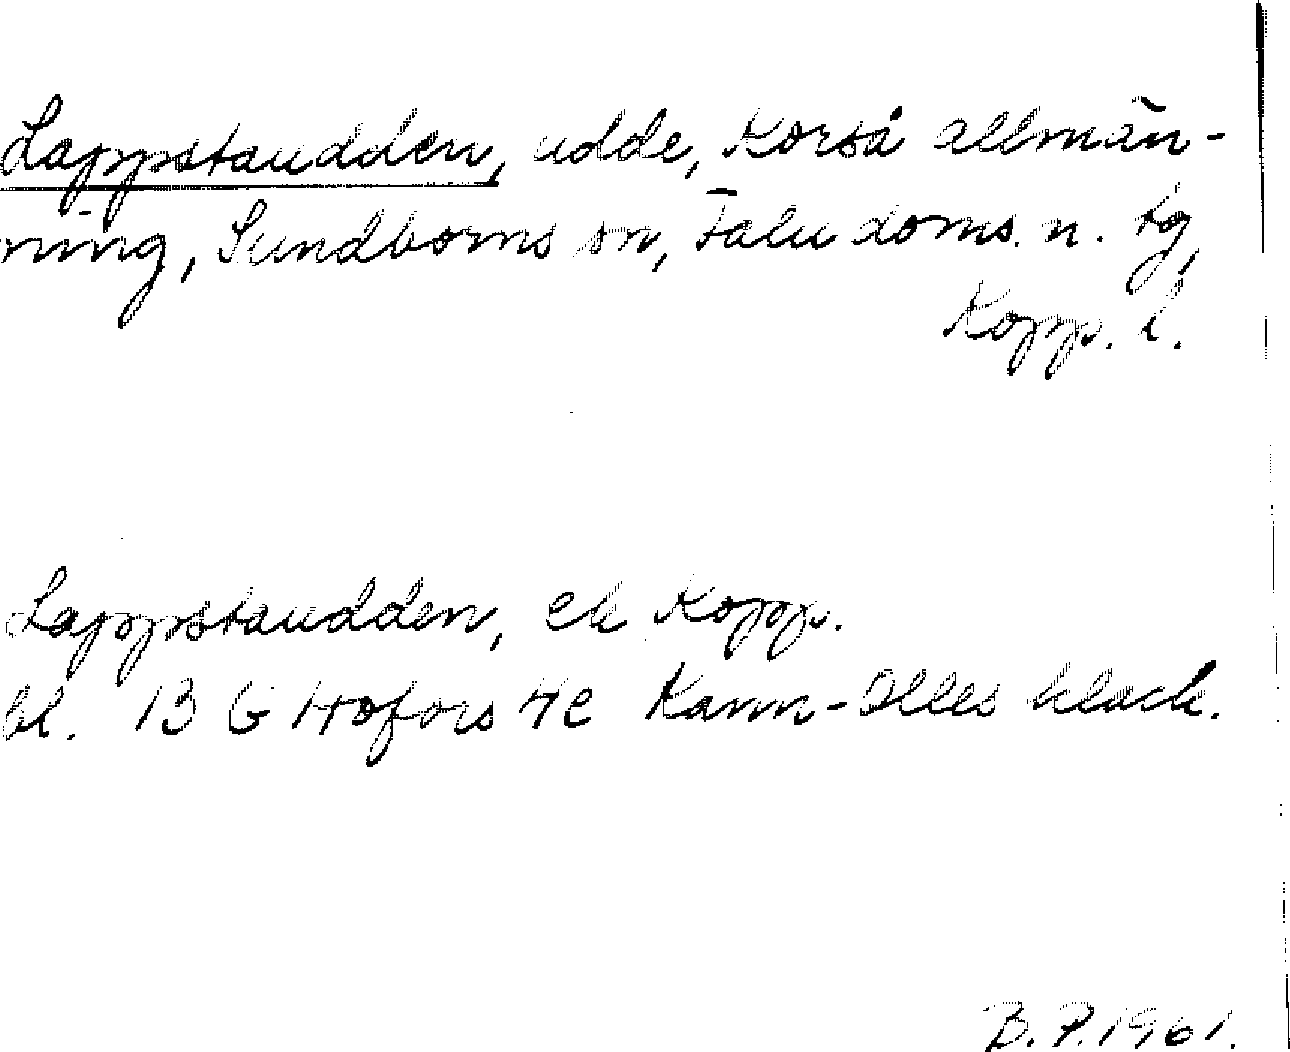 Lappstaudden, udde, Korså allmän-
ning, Sundborns sn, Falu doms. n. tg,
Kopp. l.
Lappstaudden, ek Kopp.
bl. 13 G Hofors 4c Karin-Olles klack.
B. P. 1961.